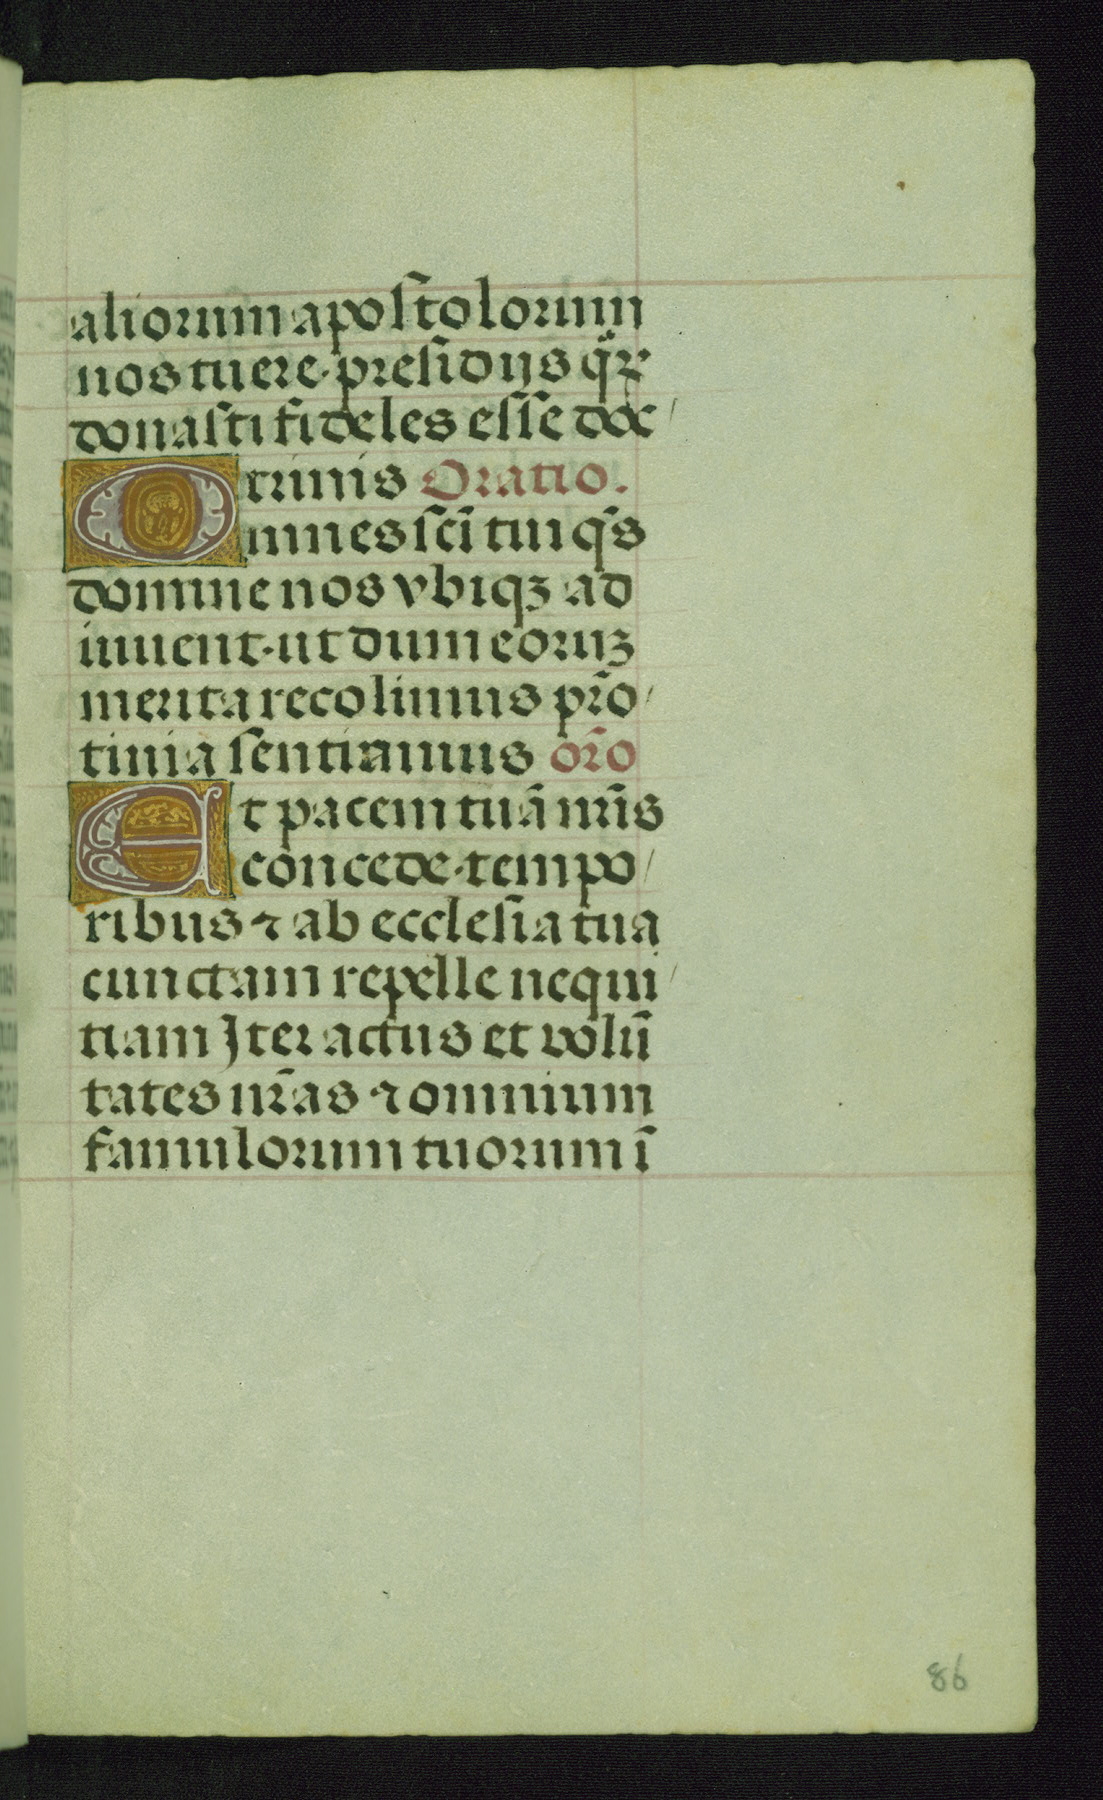 aliorum apostolorum
nos tuere · presidijs q̃ꝝ
donasti fideles esse doc/
trinis Oratio.
Omnes sc̃i tui q̃s
domine nos vbiqꝫ ad
iuuent · ut dum eoruꝫ
merita recolimus pr̃o/
tinia sentiamus or̃o
Et pacem tuã nr̃is
concede · tempo/
ribus ⁊ ab ecclesia tua
cunctam repelle nequi/
tiam Iter actus et volũ
tates nr̃as ⁊ omnium
famulorum tuorum ĩ
86